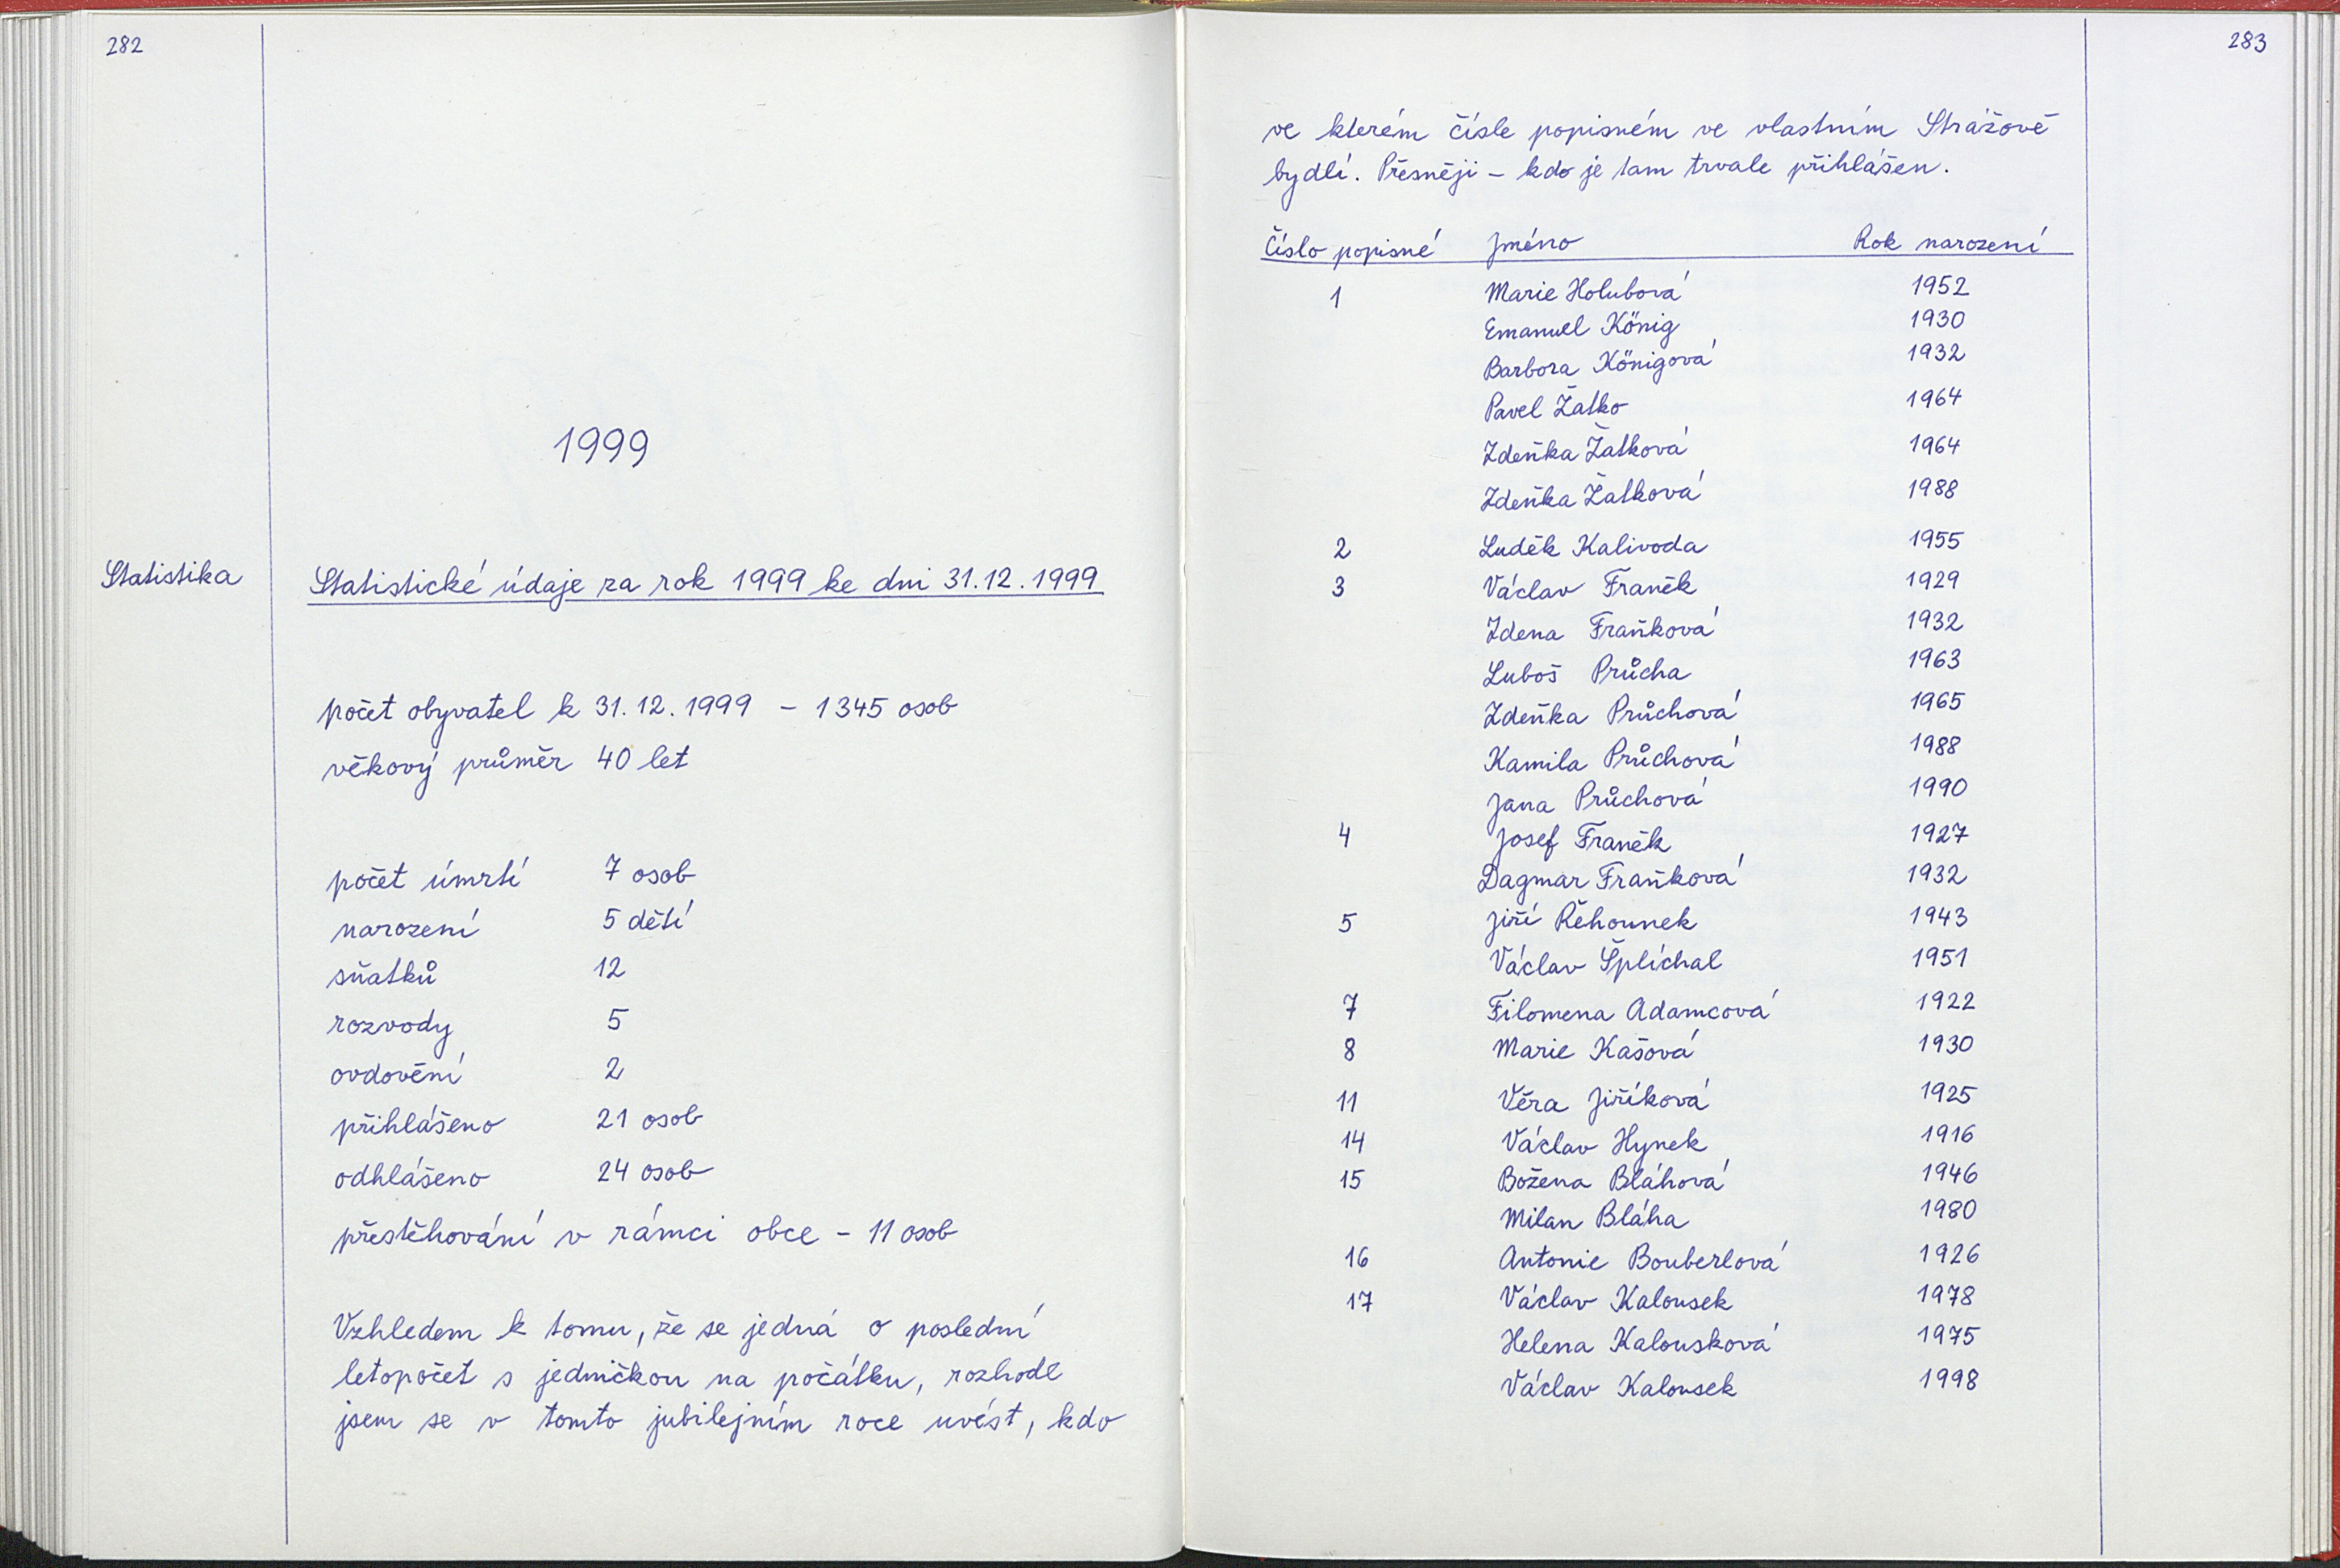 282
1999
Statistika
Statistické údaje za rok 1999 ke dni 31.12.1999
počet obyvatel k 31.12.1999 - 1345 osob
věkový průměr 40 let
počet úmrtí 7 osob
narození 5 dětí
sňatků 12
rozvody 5
ovdovění 2
přihlášeno 21 osob
odhlášeno 24 osob
přestěhování v rámci obce - 11 osob
Vzhledem k tomu, že se jedná o poslední
letopočet s jedničkou na počátku, rozhodl
jsem se v tomto jubilejním roce uvést, kdo
283
ve kterém čísle popisném ve vlastním Strážově
bydlí. Přesněji - kdo je tam trvale přihlášen.
Číslo popisné Jméno Rok narození
1 Marie Holubová 1952
Emanuel König 1930
Barbora Königová 1932
Pavel Žatko 1964
Zdeňka Žatková 1964
Zdeňka Žatková 1988
2 Luděk Kalivoda 1955
3 Václav Franěk 1929
Zdena Fraňková 1932
Luboš Průcha 1963
Zdeňka Průchová 1965
Kamila Průchová 1988
Jana Průchová 1990
4 Josef Franěk 1927
Dagmar Fraňková 1932
5 Jiří Řehounek 1943
Václav Šplíchal 1951
7 Filomena Adamcová 1922
8 Marie Kašová 1930
11 Věra Jiříková 1925
14 Václav Hynek 1916
15 Božena Bláhová 1946
Milan Bláha 1980
16 Antonie Bouberlová 1926
17 Václav Kalousek 1978
Helena Kalousková 1975
Václav Kalousek 1998